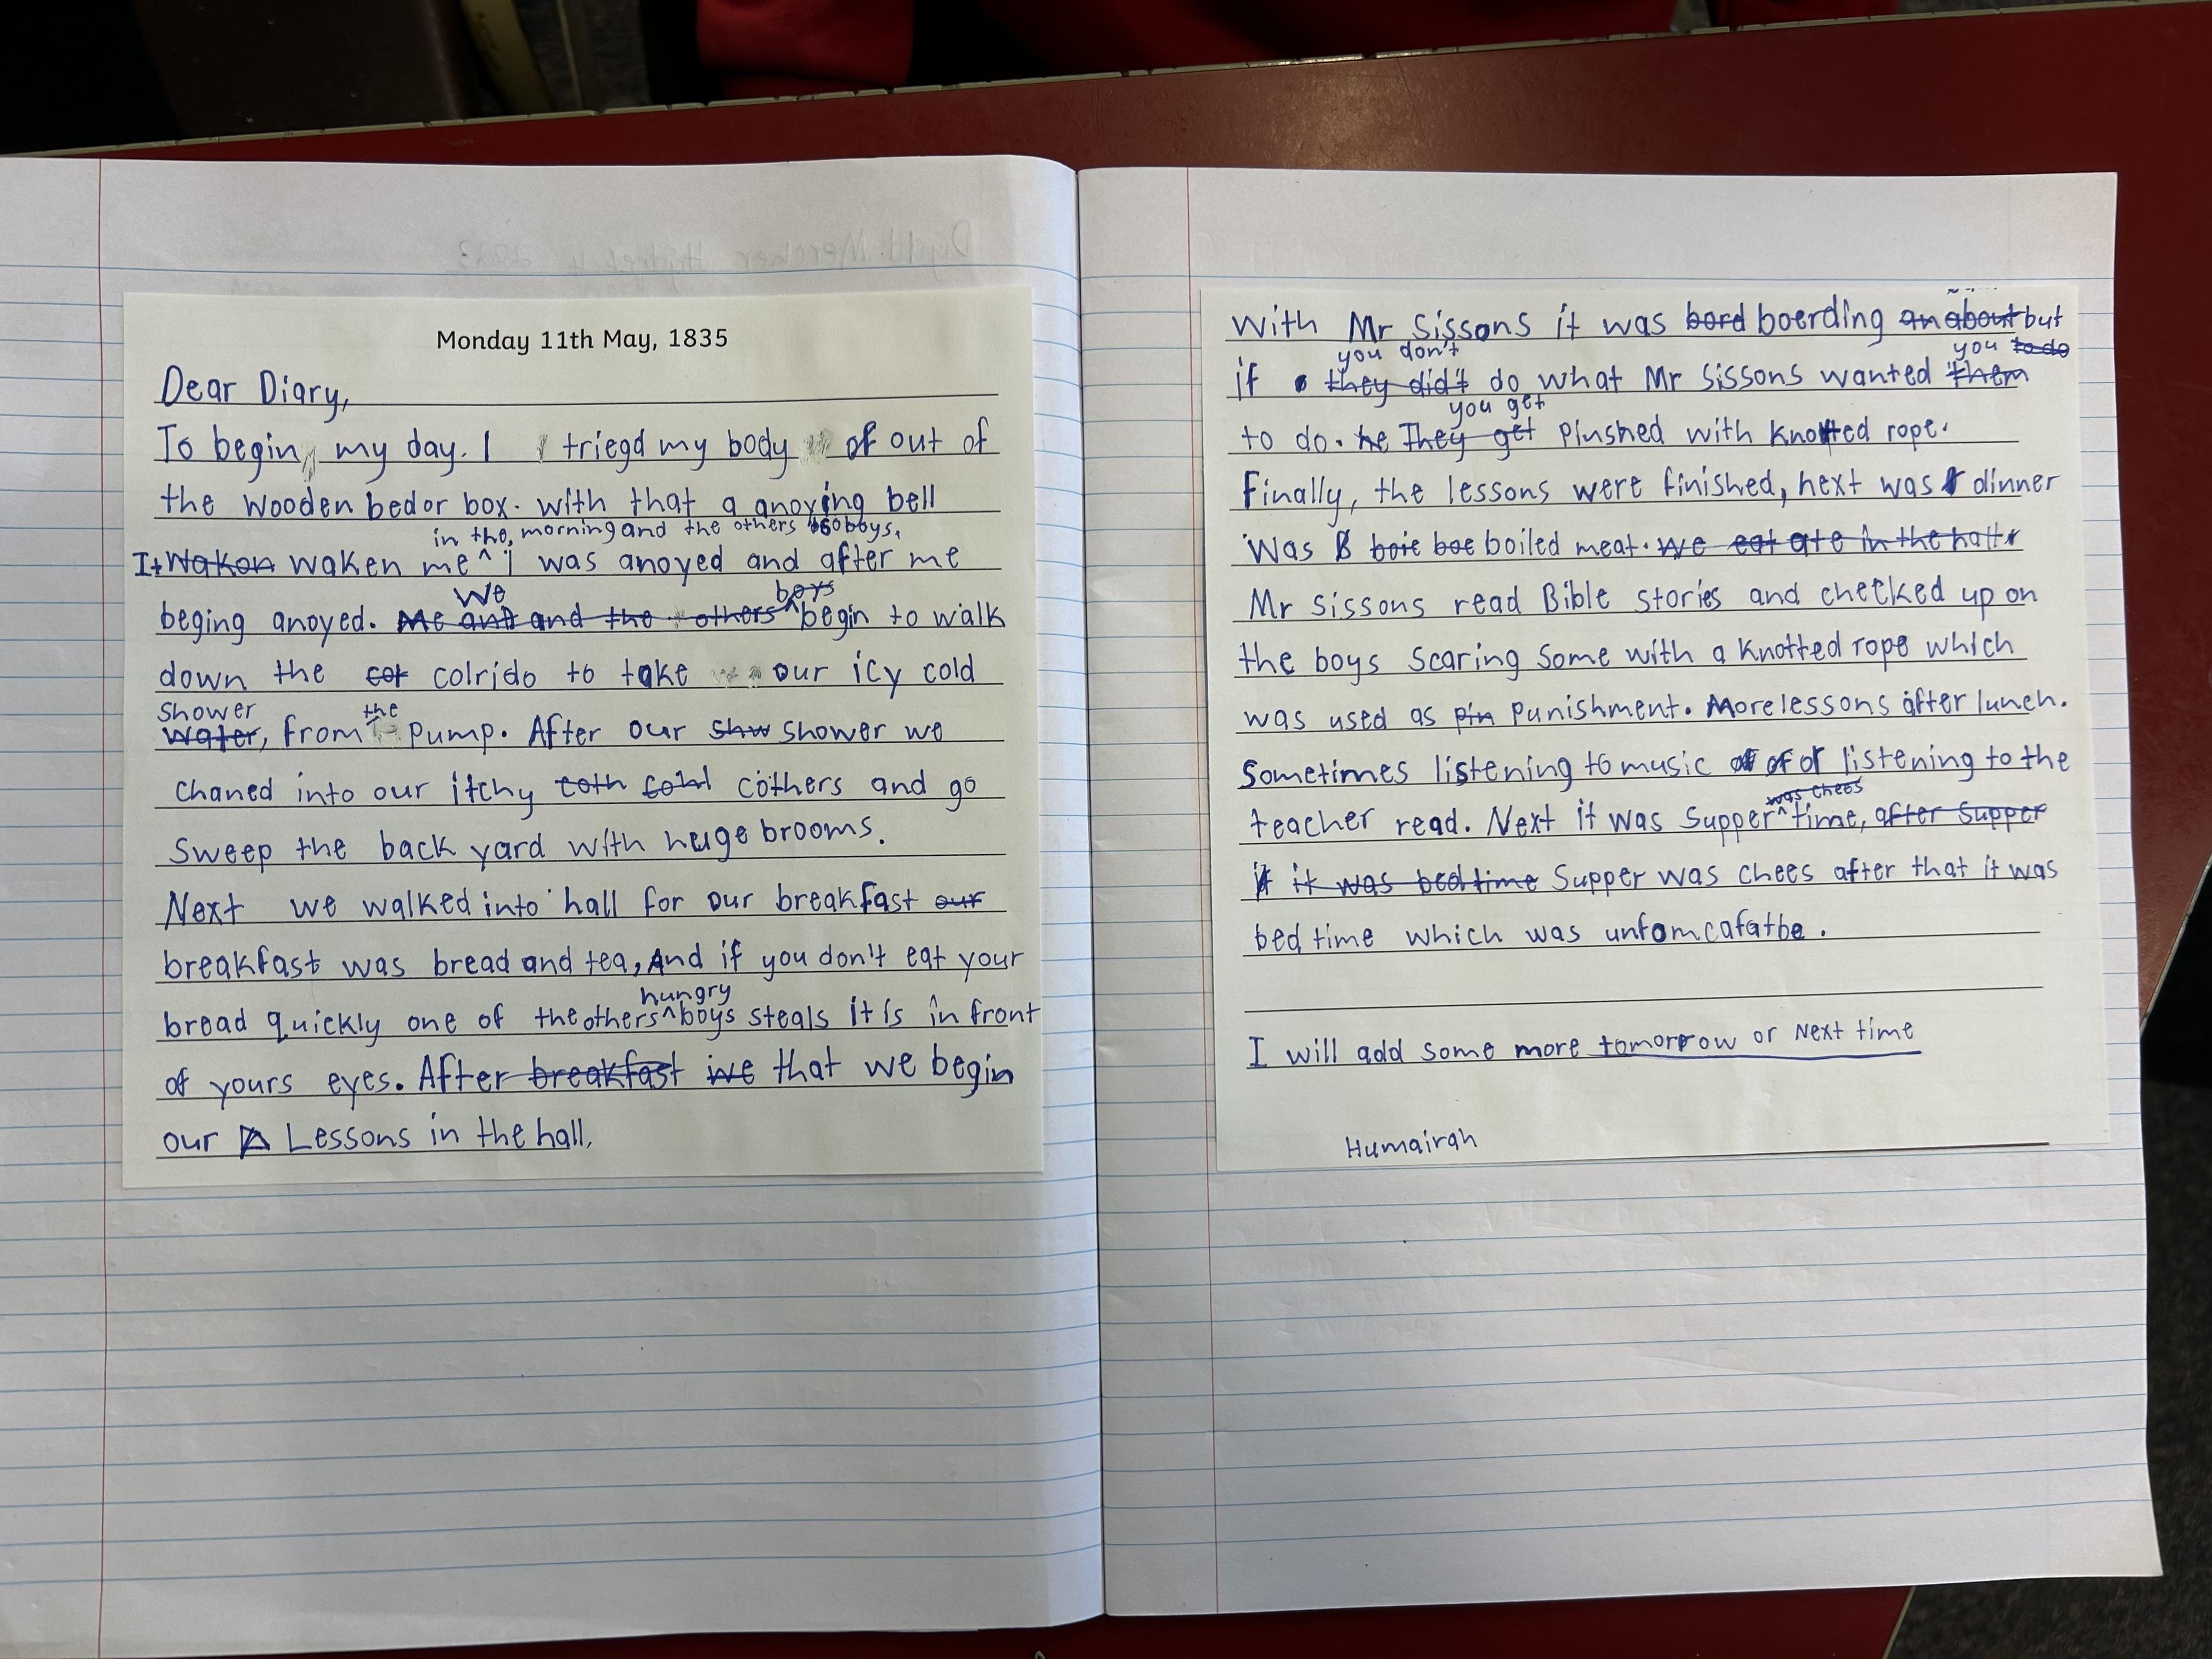 Monday 11th May, 1835
Dear Diary,
To begin, my day. I triegd my body of out of
the wooden bed or box. with that a anoying bell
in the, morning and the others 60 boys,
It Waken waken me ^ I was anoyed and after me
We boys
beging anoyed. Me and and the others ^ begin to walk
down the cor colrido to take our icy cold
Shower the
Water, from pump. After our shw shower we
chaned into our itchy coth cothers and go
sweep the back yard with huge brooms.
Next we walked into hall for our breakfast our
breakfast was bread and tea, And if you don't eat your
hungry
bread quickly one of the others ^ boys steals it is in front
of yours eyes. After breakfast we that we begin
our Lessons in the hall,
with Mr Sissons it was bord boerding an about but
you don't you to do
if they did't do what Mr Sissons wanted them
you get
to do. he They get plushed with knotted rope.
Finally, the lessons were finished, next was dinner
Was B boie boe boiled meat. We eat ate in the hall
Mr Sissons read Bible stories and checked up on
the boys scaring some with a knotted rope which
was used as pin punishment. More lessons after lunch.
Sometimes listening to music of of or listening to the
was chees
teacher read. Next it was Supper ^ time, after supper
it it was bedtime Supper was chees after that it was
bed time which was unfomcafatbe.
I will add some more tomorrow or Next time
Humairah